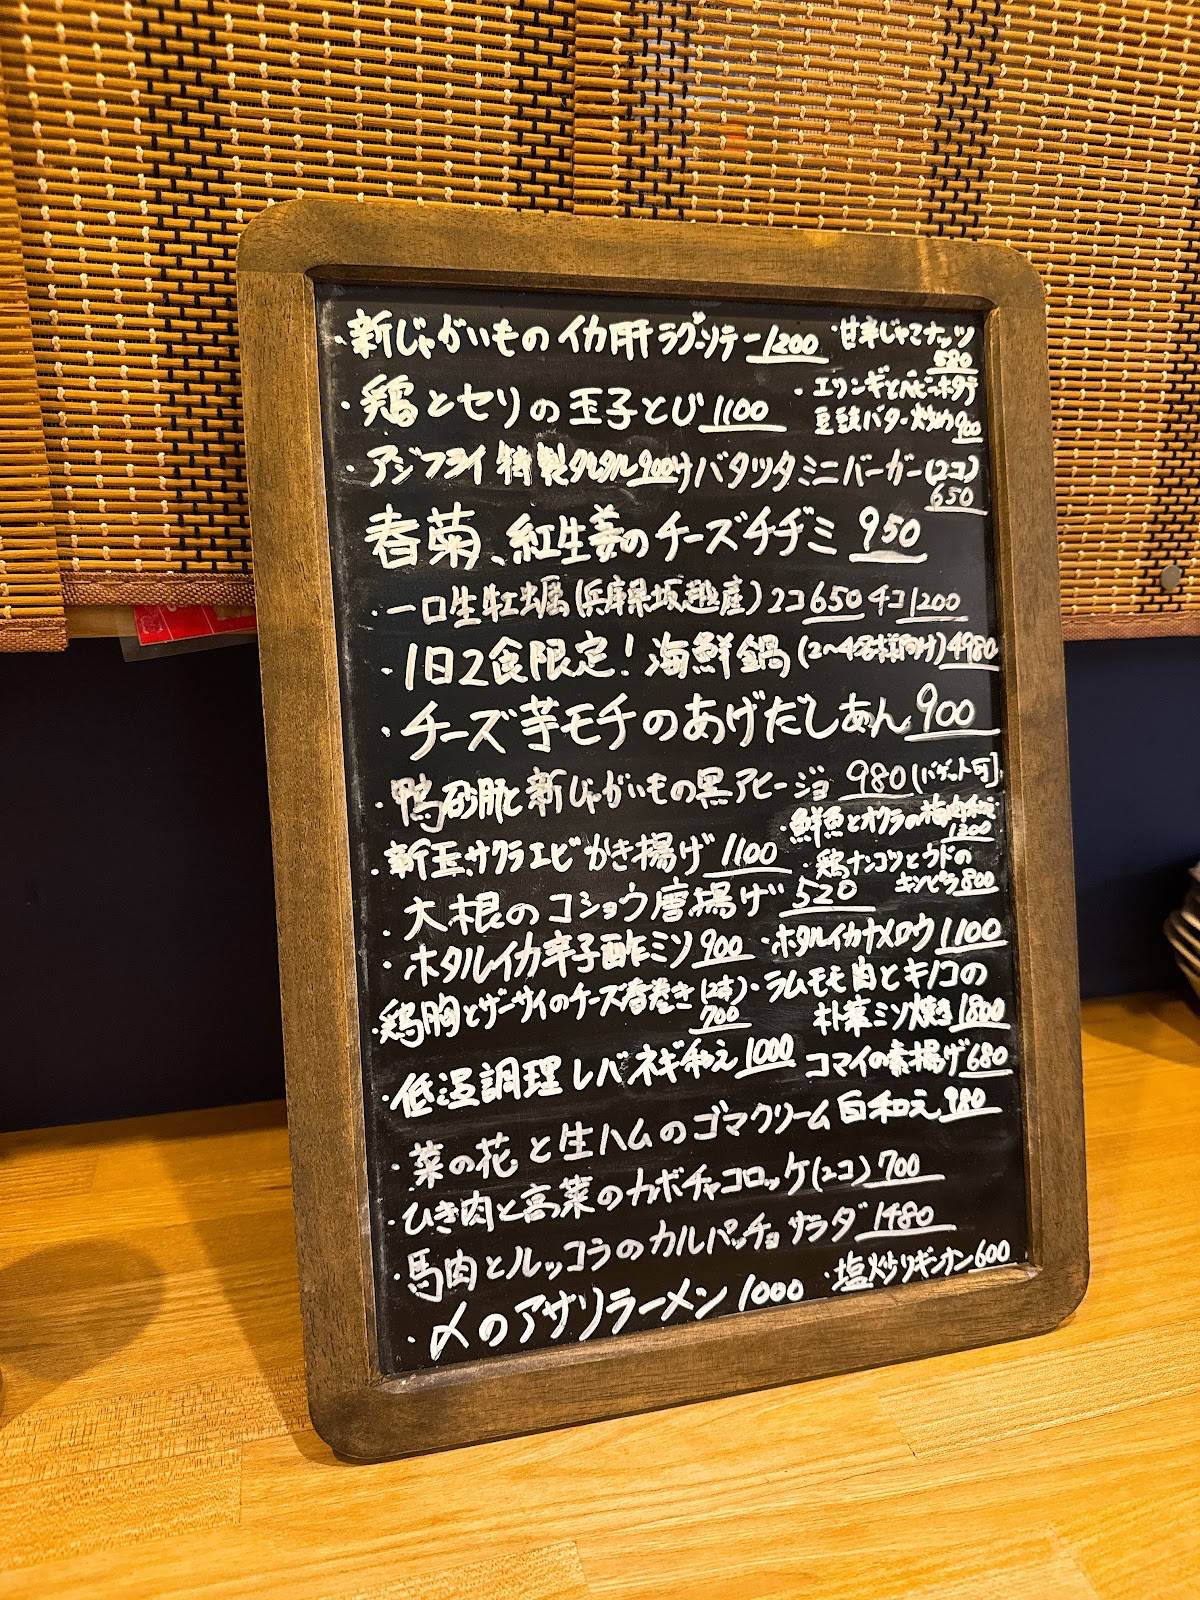 ・新じゃがいものイカ肝ラグーソテー 1200
・甘辛じゃこナッツ
580
・鶏とセリの玉子とじ 1100
・エリンギとベビーホタテ
豆鼓バター炒め 900
・アジフライ 特製タルタル 900
バタツタミニバーガー(2コ)
650
・春菊、紅生姜のチーズチヂミ 950
・一口生牡蠣(兵庫県坂越産) 2コ 650 4コ 1200
・1日2食限定! 海鮮鍋 (2~4名様向け) 4980
・チーズ芋モチのあげだしあん 900
・鴨砂肝と新じゃがいもの黒アヒージョ 980 (バゲット可)
・鮮魚とオクラの梅肉和え
1200
・新玉、サクラエビかき揚げ 1100
・鶏ナンコツとウドの
キンピラ 800
・大根のコショウ唐揚げ 520
・ホタルイカ辛子酢ミソ 900
・ホタルイカナメロウ 1100
・鶏胸とザーサイのチーズ春巻き (2本)
700
・ラムモモ肉とキノコの
朴葉ミソ焼き 1800
・低温調理レバネギ和え 1000
コマイの素揚げ 680
・菜の花と生ハムのゴマクリーム白和え 980
・ひき肉と高菜のカボチャコロッケ(2コ) 700
・馬肉とルッコラのカルパッチョサラダ 1480
・塩炒りギンナン 600
・〆のアサリラーメン 1000